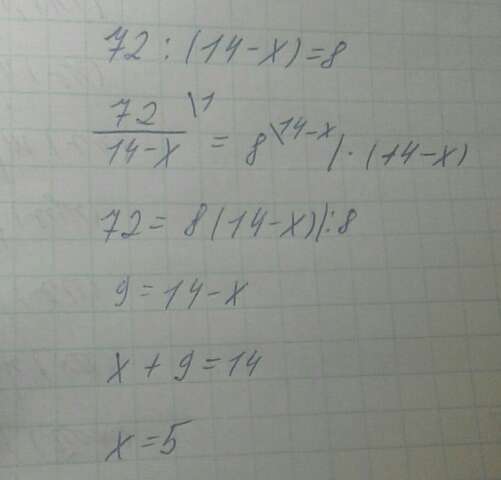 72 : (14-x) = 8
72 \1
14-x = 8 \14-x | · (14-x)
72 = 8(14-x) | : 8
9 = 14-x
x + 9 = 14
x = 5